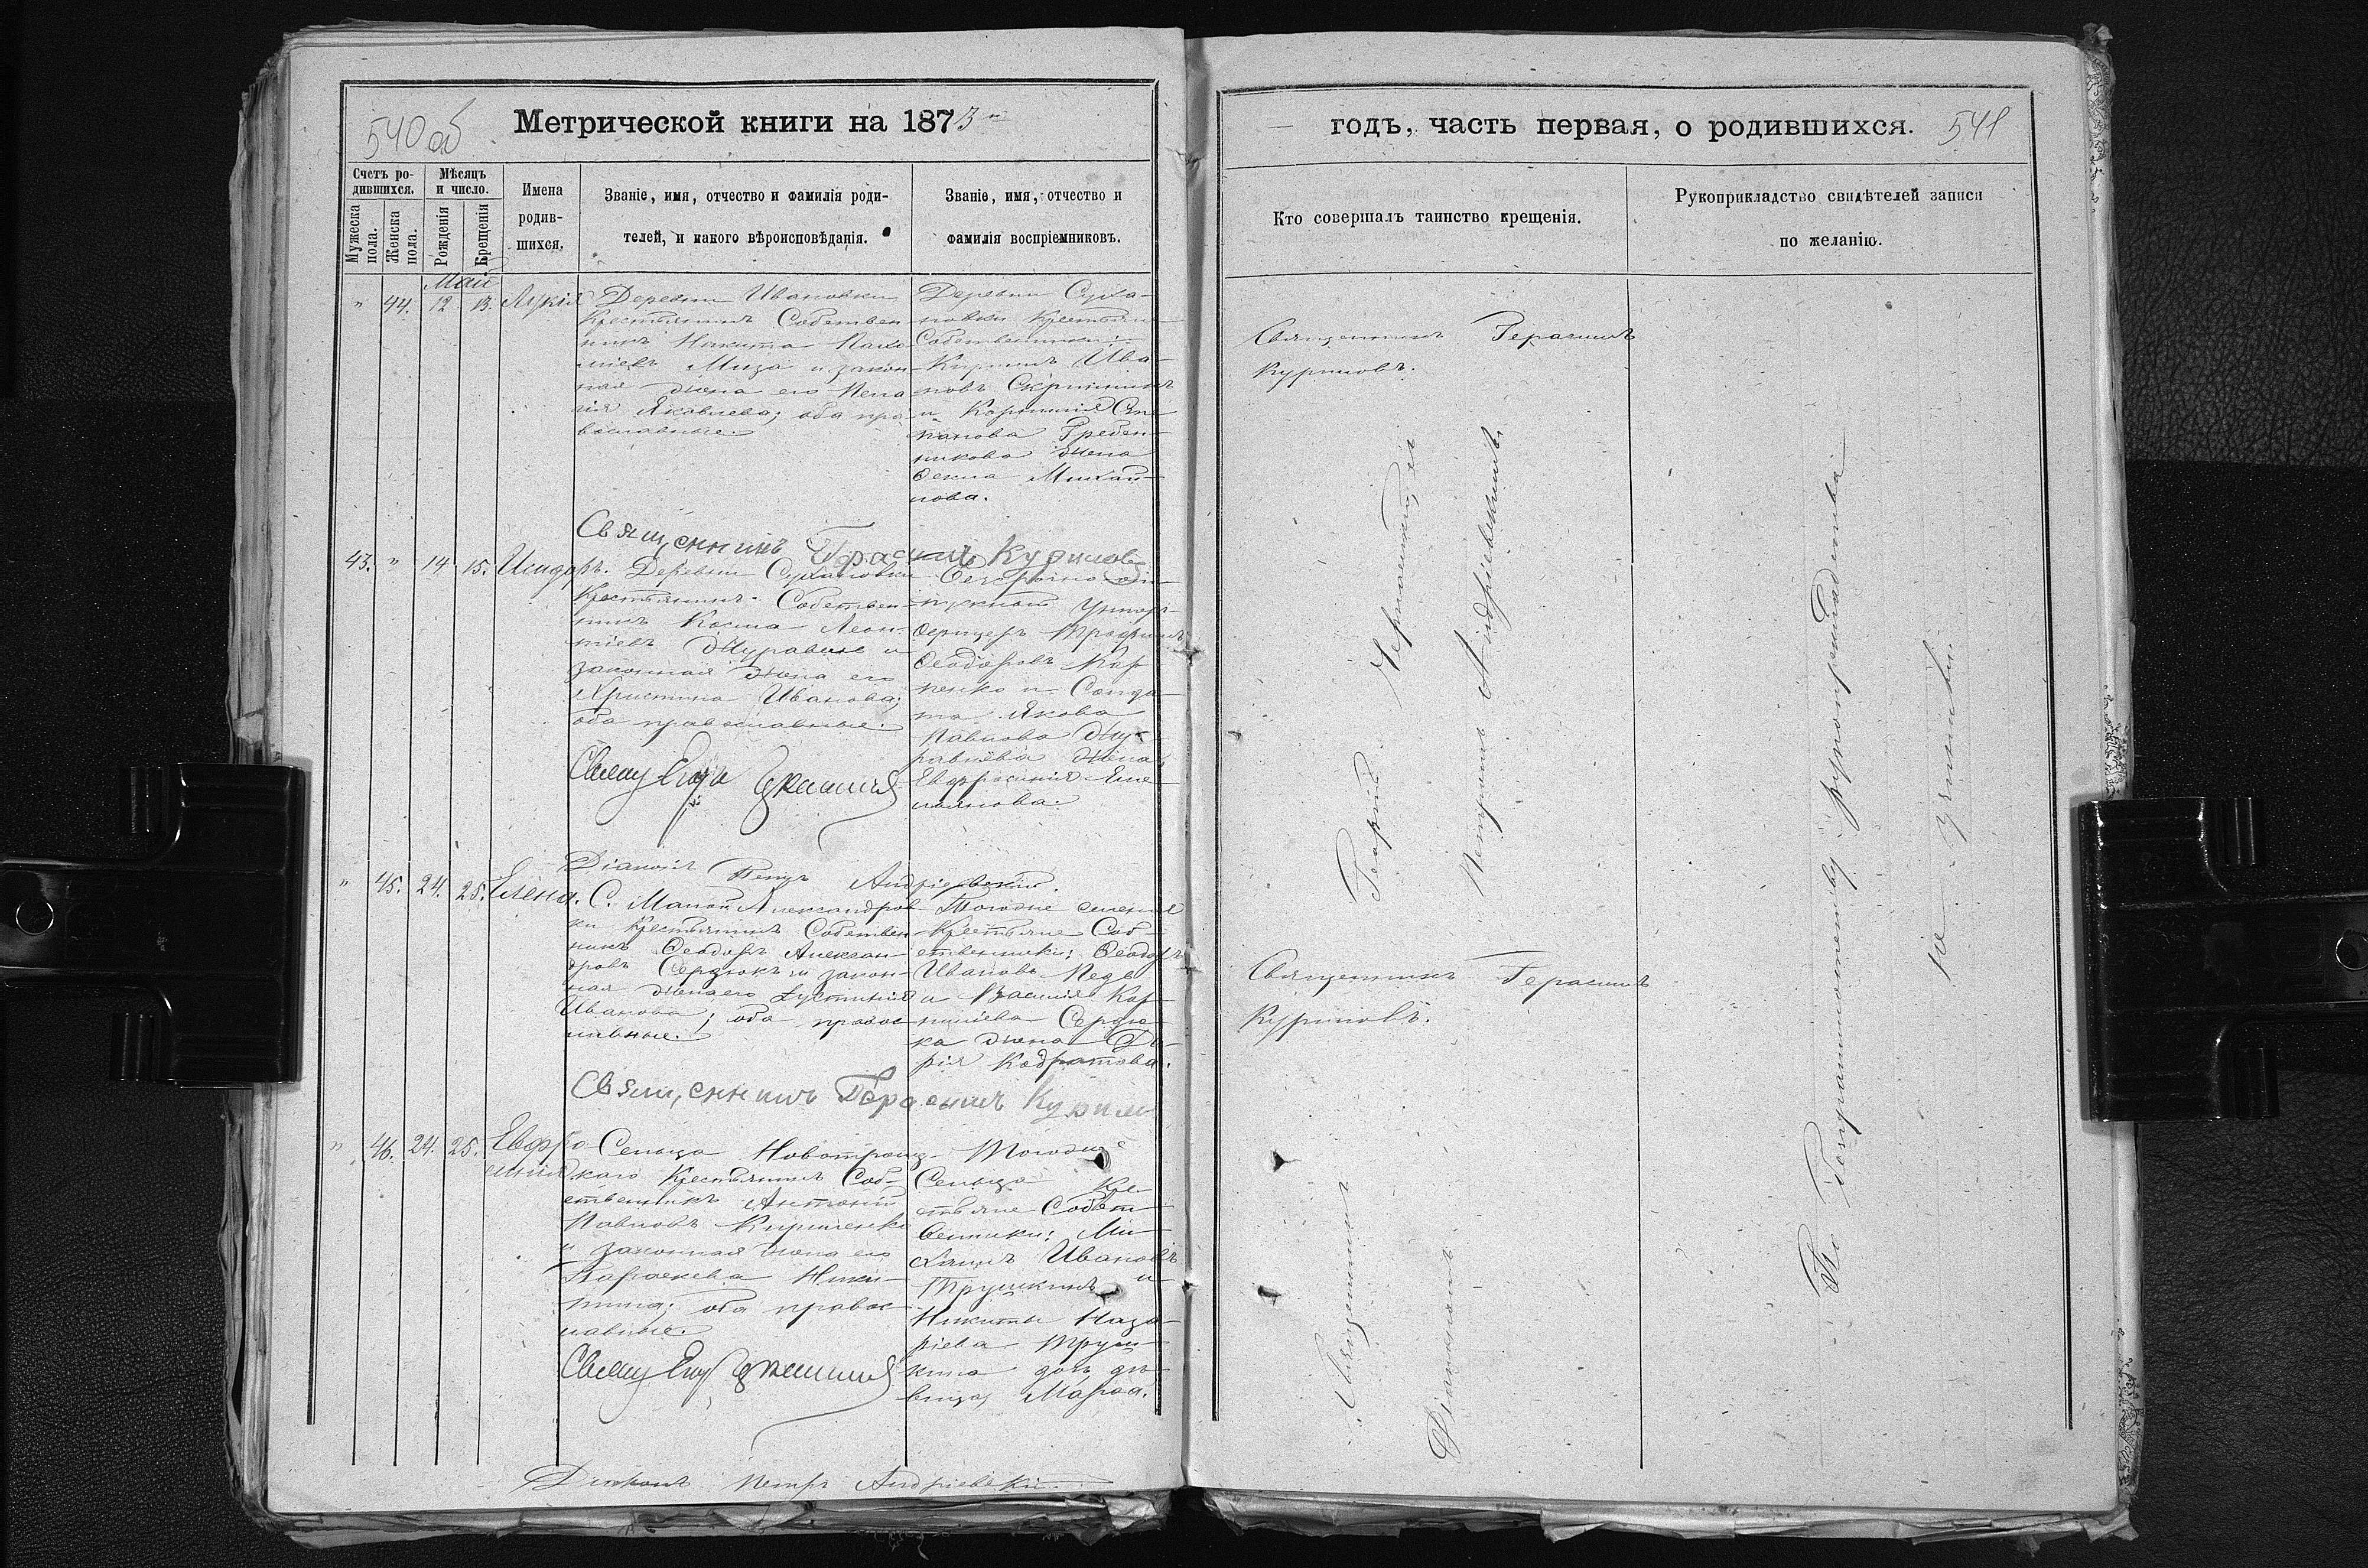 540 об
Метрической книги на 1873 й
Счетъ ро-
дившихся.
Мѣсяцъ
и число.
Мужеска пола.
Женска пола.
Рожденія
Крещенія
Имена
родив-
шихся.
Званіе, имя, отчество и фамилія роди-
телей, и какого вѣроисповѣданія.
Званіе, имя, отчество и
фамилія воспріемниковъ.
Май
" 44. 12 13. Лукія
Деревни Ивановки
Крестьянинъ Собствен-
никъ Никита Пахо-
міевъ Муза и закон-
ная жена его Пела
гія Яковлева; оба пра-
вославные.
Деревни Суха-
новки Крестьяне
Собственники:
Кириллъ Ива-
новъ
и Корнилія Сте
панова Гребен-
никова жена
Фекла Михай-
лова.
Священникъ Герасимъ Куриловъ
43. " 14 15. Исидоръ.
Деревни Сухановки
Крестьянинъ Собствен-
никъ Косма Леон-
тіевъ Журавель и
законная жена его
Христина Иванова;
оба православные.
Безсрочно от-
пускной Унтеръ-
Офицеръ Трофимъ
Феодоровъ Кар
пенко и Солда-
та Якова
Павлова Жу-
равлева жена
Евфросинія Еме-
льянова.
Діаконъ Петръ Андріевскій.
" 45. 24. 25. Елена.
С. Малой Александров
ки Крестьянинъ Собствен-
никъ Феодоръ Алексан-
дровъ Сердюкъ и закон-
ная жена его Іустинія
Иванова; оба правос
лавные.
Тогоже селенія
Крестьяне Соб-
ственники: Феодоръ
Ивановъ
и Василія Кор-
нилiева Сердю-
ка жена Да-
рія Кодратова.
Священникъ Герасимъ Курилов
" 46. 24. 25. Евфро
синія
Сельца Новотроиц-
каго Крестьянинъ Соб-
ственникъ Антоній
Павловъ Кириленко
и законная жена его
Параскева Ники-
тина; оба правос-
лавные.
Тогоже
Сельца Кре-
стьяне Собст
венники: Ми
хаилъ Ивановъ
Трушкинъ и
Никиты Наза-
ріева Труш-
кина дочь дѣ-
вица, Марфа.
Діаконъ Петръ Андріевскій.
годъ, часть первая, о родившихся.
541
Кто совершалъ таинство крещенія.
Рукоприкладство свидѣтелей записи
по желанію.
Священникъ Герасимъ
Куриловъ.
Священникъ Георгій
Діакономъ Петромъ Андріевскимъ.
Священникъ Герасимъ
Куриловъ.
По безграмотности рукоприкладства
не учинили.